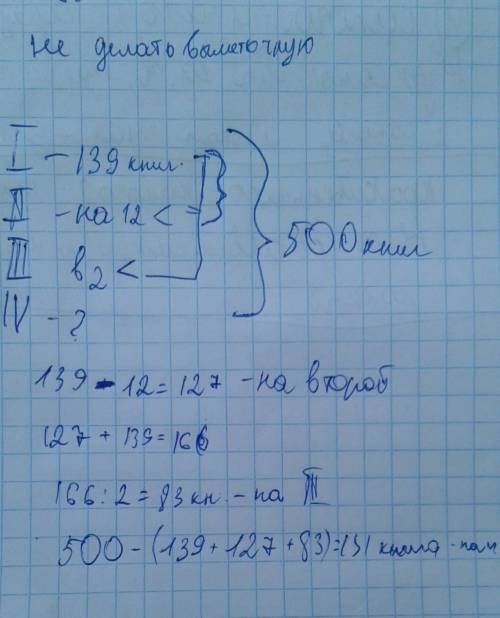 не делать
I - 139 книг.
II - на 12 <
III в 2 <
500 книг
IV - ?
139 - 12 = 127 - на второй
127 + 139 = 166
166 : 2 = 83 кн. - на III
500 - (139 + 127 + 83) = 151 книга -